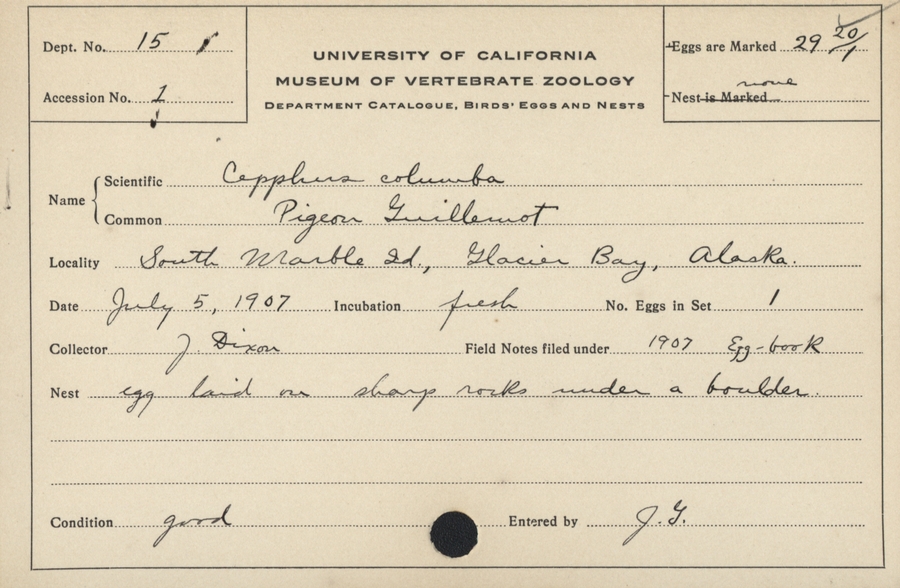 Dept. No. 15
UNIVERSITY OF CALIFORNIA
MUSEUM OF VERTEBRATE ZOOLOGY
DEPARTMENT CATALOGUE, BIRDS' EGGS AND NESTS
Accession No. 1
Eggs are Marked 29 20/1
none
Nest is Marked
Name
Scientific Cepphus columba
Common Pigeon Guillemot
Locality South Marble Id., Glacier Bay, Alaska.
Date July 5, 1907 Incubation fresh No. Eggs in Set 1
Collector J. Dixon Field Notes filed under 1907 Egg-book
Nest egg laid on sharp rocks under a boulder.
Condition good Entered by J.G.